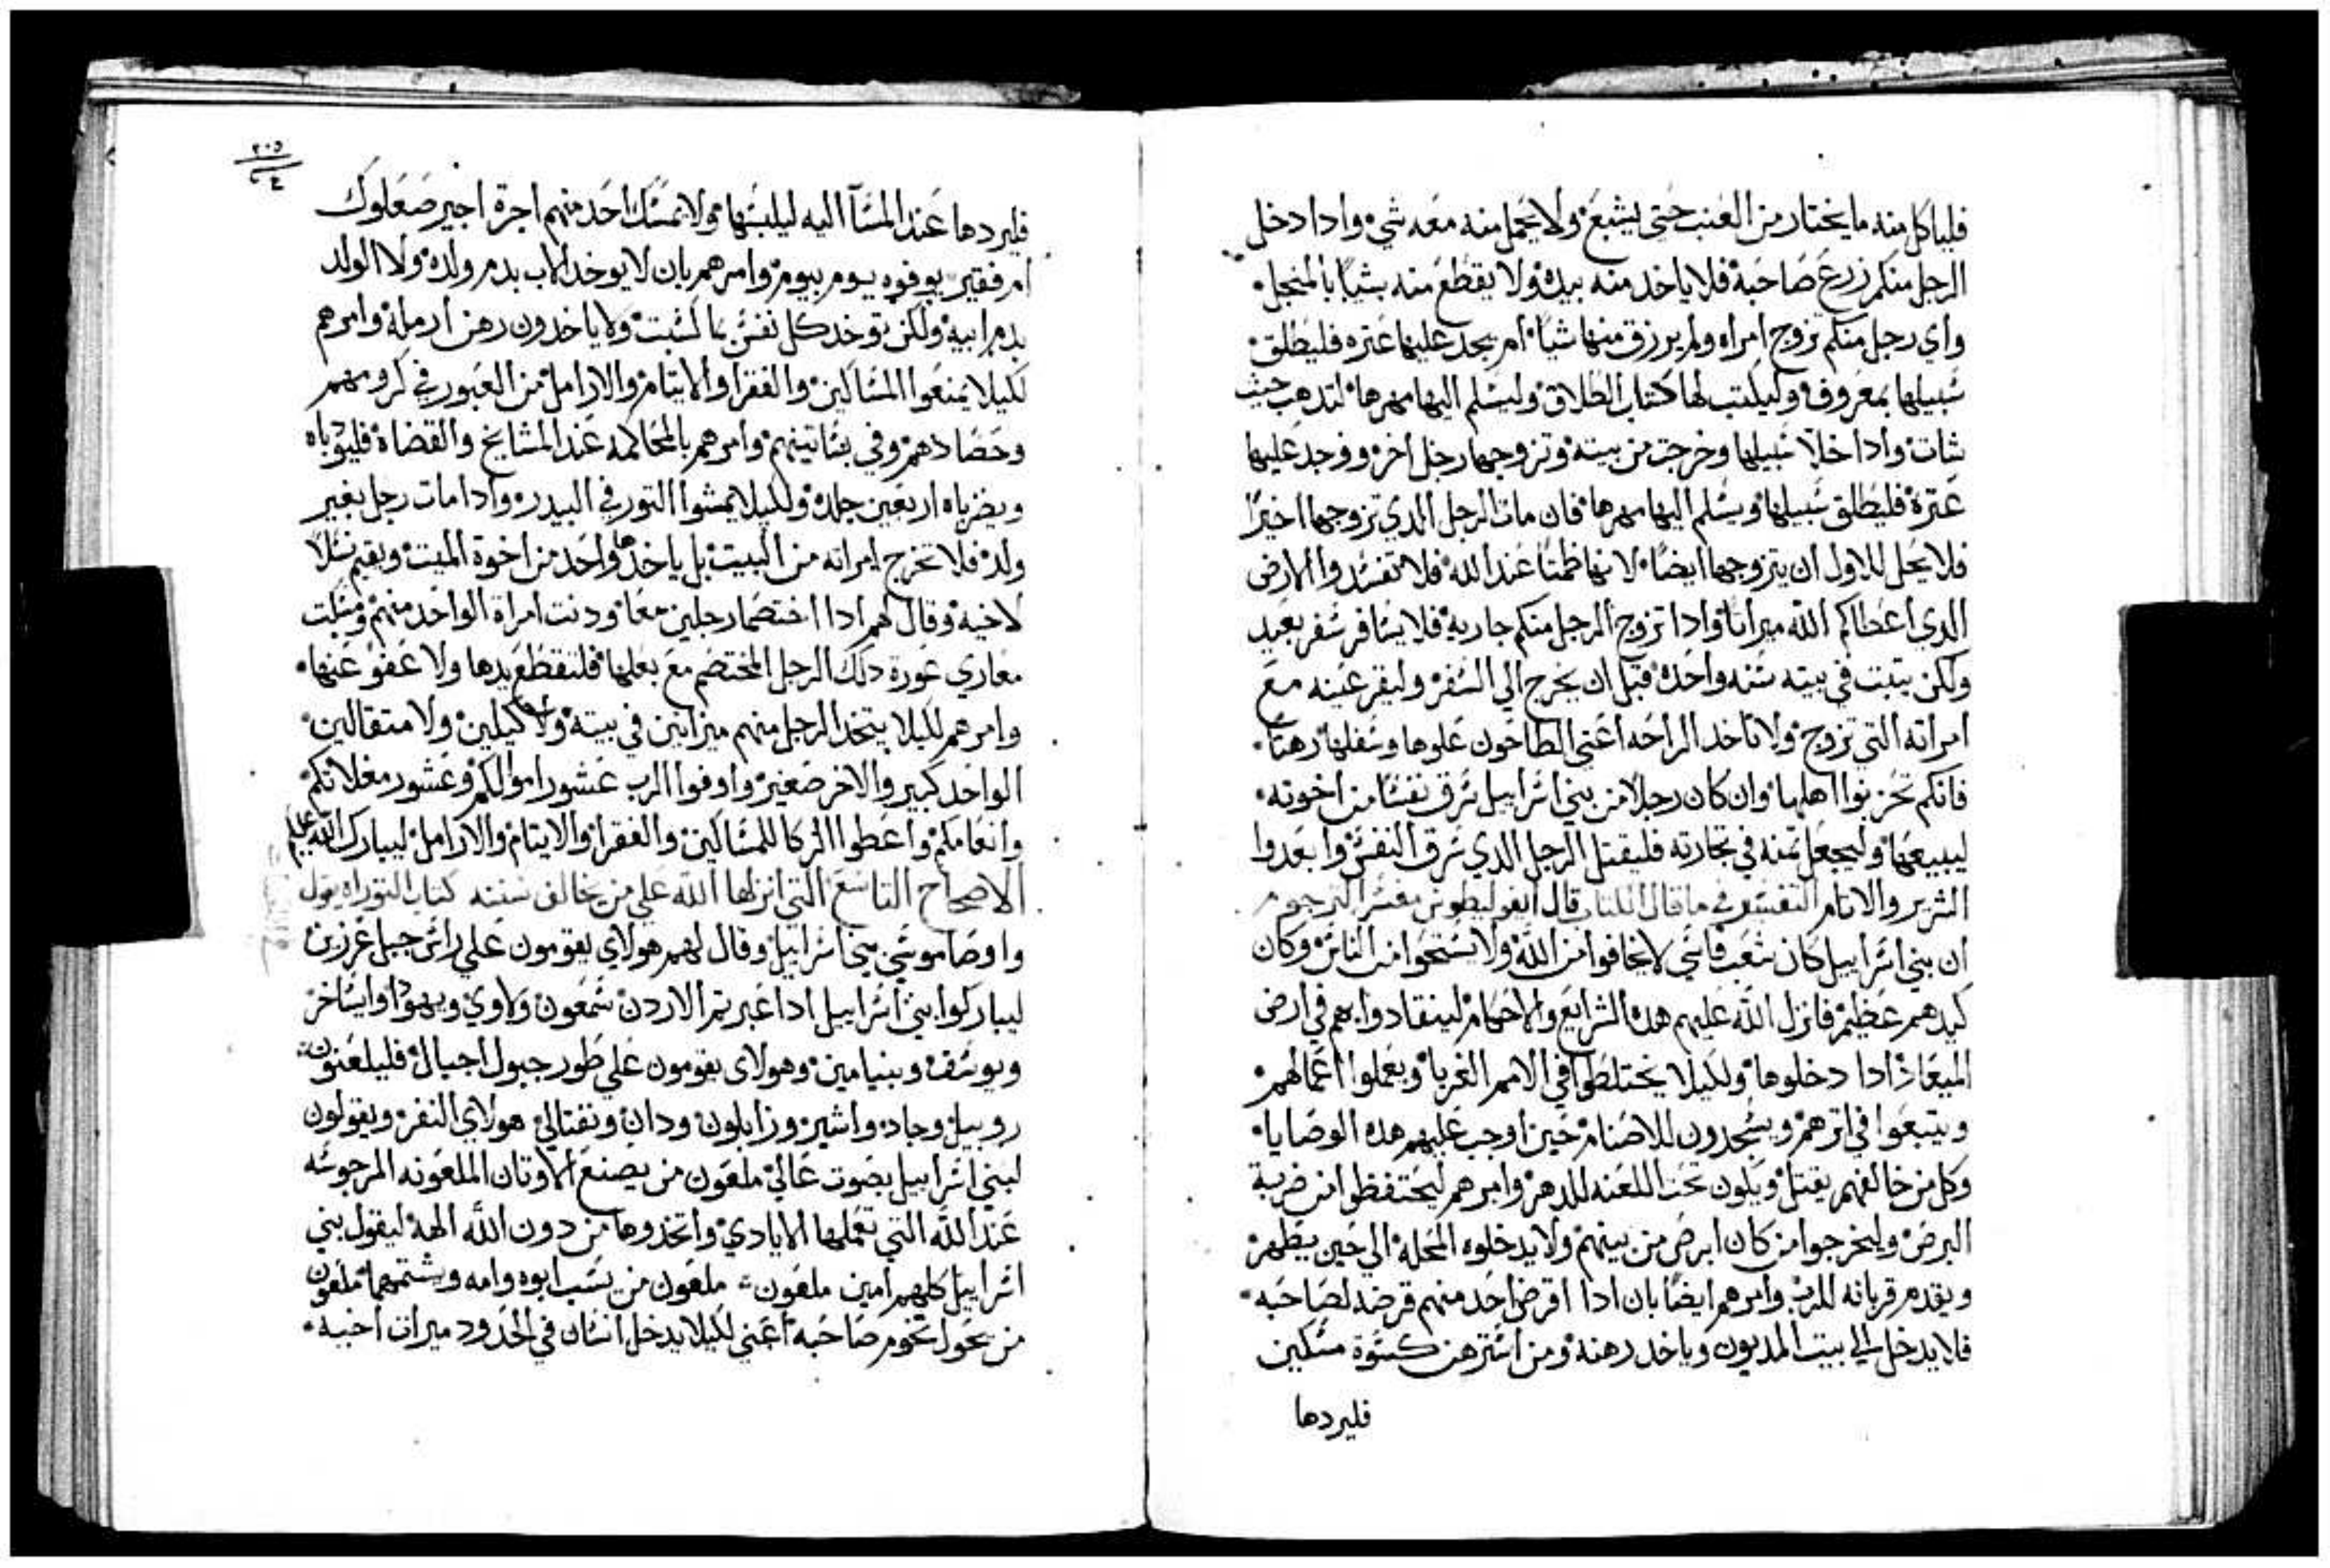 فلياكل منه ما يختار من العنب حتى يشبع ولا يحمل منه معه شي وادا دخل
الرجل منكم زرع صاحبه فلا ياخد منه بيده ولا يقطع منه شيا بالمنجل
واي رجل منكم تزوج امراه ولم يرزق منها شيا ام يجد عليها عتره فليطلق
سبيلها بمعروف وليكتب لها كتاب الطلاق وليسلم اليها مهرها لتدهب حيث
شات وادا خلا سبيلها وخرجت من بيته وتزوجها رجل اخر ووجد عليها
عترة فليطلق سبيلها ويسلم اليها مهرها فان مات الرجل الدي تزوجها اخيرا
فلا يحل للاول ان يتزوجها ايضا لانها طمتا عند الله فلا تفسدوا الارض
الدي اعطاكم الله ميراتا وادا تزوج الرجل منكم جاريه فلا يسافر سفر بعيد
ولكن يتبت في بيته سنه واحده قبل ان يخرج الي السفر وليفر عينه مع
امراته التي تزوج ولا تاخد الراحه اعني الطاحون علوها وسفلها رهنا
فانكم تحزنوا اهلها وان كان رجلا من بني اسراييل سرق نفسا من اخوته
ليبيعها وليجعل تمنه في تجارته فليقتل الرجل الدي سرق النفس وابعدوا
الشرير والاتام التفسير في ما قال الكتاب قال ابفوليطوس مفسر الترجوم
ان بني اسراييل كان شعب قاسي لا يخافوا من الله ولا يستحوا من الناس وكان
كيدهم عظيم فانزل الله عليهم هده الشرايع والاحكام لينقادوا بهم في ارض
الميعاد ادا دخلوها ولكيلا يختلطوا في الامم الغربا ويعملوا اعمالهم
ويتبعوا في اترهم ويسجدون للاصنام حين اوجب عليهم هده الوصايا
وكل من خالفهم يقتل ويكون تحت اللعنه للدهر وامرهم ليحتفظوا من ضربة
البرص وليخرجوا من كان ابرص من بينهم ولا يدخلوه المحله الي حين يطهر
ويقدم قربانه للرب وامرهم ايضا بان ادا اقرض احد منهم قرضه لصاحبه
فلا يدخل الي بيت المديون وياخد رهنه ومن استرهن كسوة مسكين
فليردها
٢٠٥
٤
فليردها عند المسآ اليه ليلبسها ولا يمسك احد منهم اجرة اجير صعلوك
ام فقير يوفوه يوم بيوم وامرهم بان لا يوخد الاب بدم ولده ولا الولد
بدم ابيه ولكن توخد كل نفس بما كسبت ولا ياخدون رهن ارمله وامرهم
لكيلا يمنعوا المساكين والفقرا والايتام والارامل من العبور في كرومهم
وحصادهم وفي بساتينهم وامرهم بالمحاكمه عند المشايخ والقضاة فليودباه
ويضرباه اربعين جلده ولكيلا يمشوا التور في البيدر وادا مات رجل بغير
ولد فلا تخرج امراته من البيت بل ياخدها واحد من اخوة الميت ويقيم نسلا
لاخيه وقال لهم ادا اختصما رجلين معا ودنت امراة الواحد منهم ومسكت
معاري عورة دلك الرجل المختصم مع بعلها فلتقطع يدها ولا عفو عنها
وامرهم لكيلا يتخد الرجل منهم ميزانين في بيته ولا كيلين ولا متقالين
الواحد كبير والاخر صغير واوفوا الرب عشور اموالكم وعشور مغلاتكم
وانعامكم واعطوا الزكا للمساكين والفقرا والايتام والارامل ليبارك الله عليكم
الاصحاح التاسع التي انزلها الله علي من خالف سنته كتاب التوراه يقول
واوصا موسي بني اسراييل وقال لهم هولاي يقومون علي راس جبل غرزين
ليباركوا بني اسراييل ادا عبرتم الاردن شمعون ولاوي ويهودا وايساخر
ويوسف وبنيامين وهولاى يقومون علي طور جبول اجبال فليلعنون
روبيل وجاد واشير وزابلون ودان ونفتالي هولاي النفر ويقولون
لبني اسراييل بصوت عالي ملعون من يصنع الاوتان الملعونه المرجوسه
عند الله التي تعملها الايادي واتخدوها من دون الله الهة ليقول بني
اسراييل كلهم امين ملعون ملعون من يسب ابوه وامه ويشتمهما ملعون
من يحول تخوم صاحبه اعني لكيلا يدخل انسان في الحدود ميرات اخيه